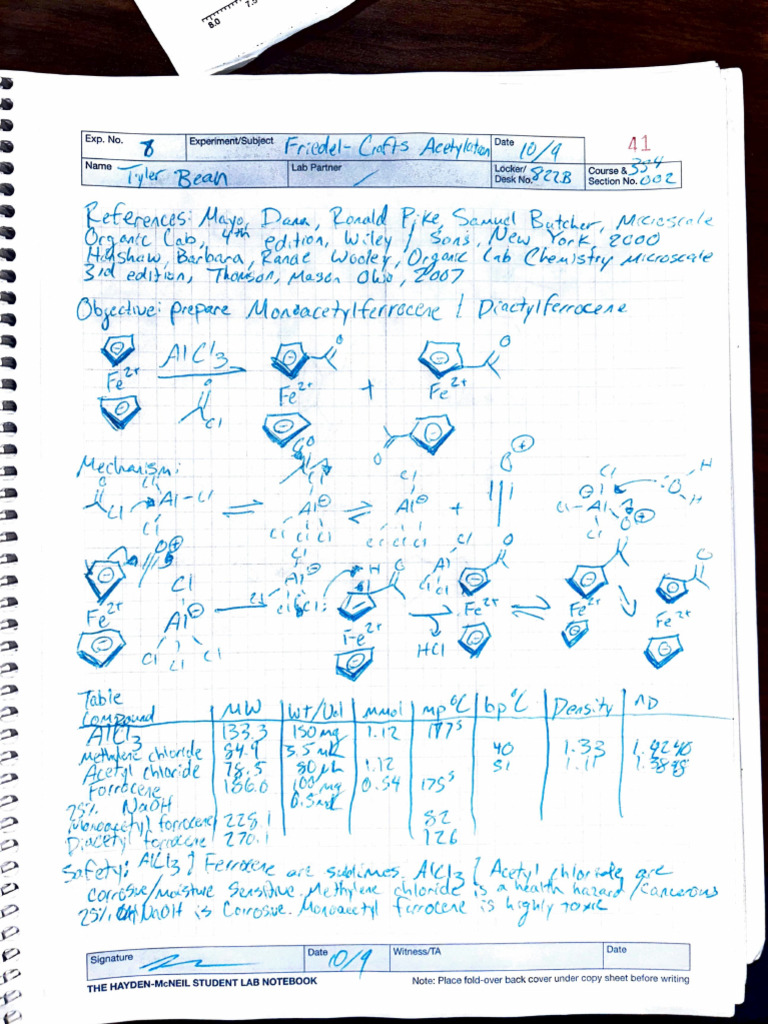 8.0
7.5
Exp. No. 8 Experiment/Subject Friedel-Crafts Acetylation Date 10/9 41
Name Tyler Bean Lab Partner / Locker/Desk No. 822B Course & Section No. 354 002
References: Mayo, Dana, Ronald Pike, Samuel Butcher, Microscale
Organic Lab, 4th edition, Wiley & Sons, New York, 2000
Hanshaw, Barbara, Ranae Wooley, Organic Lab Chemistry Microscale
3rd edition, Thomson, Mason Ohio, 2007
Objective: prepare Monoacetylferrocene & Diactylferrocene
AlCl3
Fe2+ Fe2+ + Fe2+
O Cl O O
Mechanism:
O Cl Al-Cl Cl Al⊖ Cl Cl Cl Al⊖ Cl Cl Cl + O⊕ Cl ⊖ Cl-Al O⊕ Cl O H H
Fe2+ Cl Al⊖ Cl Cl Cl Al⊖ Cl H O Fe2+ HCl Al Cl Cl Cl Fe2+ Fe2+ Fe2+
Table
Compound MW Wt/Vol Mmol mp°C bp°C Density nD
AlCl3 133.3 150mg 1.12 177s
Methylene chloride 84.9 3.5mL 40 1.33 1.4240
Acetyl chloride 78.5 80μL 1.12 51 1.11 1.3898
Ferrocene 186.0 100mg 0.54 175s
25% NaOH 0.5mL
Monoacetyl ferrocene 228.1 82
Diacetyl ferrocene 270.1 126
Safety: AlCl3 & Ferrocene are sublimes. AlCl3 & Acetyl chloride are
corrosive/moisture sensitive. Methylene chloride is a health hazard/cancerous
25% NaOH is Corrosive. Monoacetyl ferrocene is highly toxic
Signature Date 10/9 Witness/TA Date
THE HAYDEN-McNEIL STUDENT LAB NOTEBOOK Note: Place fold-over back cover under copy sheet before writing